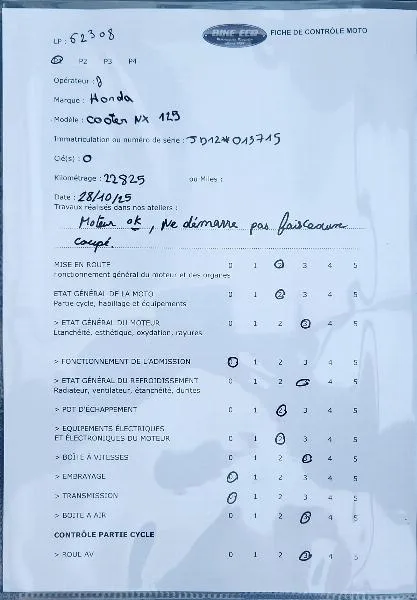 LP : 62308
BIKE ECO
FICHE DE CONTRÔLE MOTO
P2 P3 P4
Opérateur :
Marque : Honda
Modèle : cooter NX 125
Immatriculation ou numéro de série : JD12*013715
Clé(s) : 0
Kilométrage : 22825 ou Miles :
Date : 28/10/25
Travaux réalisés dans nos ateliers :
Moteur ok, Ne démarre pas faisceaux
coupé.
MISE EN ROUTE 0 1 2 3 4 5
Fonctionnement général du moteur et des organes
ETAT GÉNÉRAL DE LA MOTO 0 1 2 3 4 5
Partie cycle, habillage et équipements
> ETAT GÉNÉRAL DU MOTEUR 0 1 2 3 4 5
Etanchéité, esthétique, oxydation, rayures
> FONCTIONNEMENT DE L'ADMISSION 0 1 2 3 4 5
> ETAT GÉNÉRAL DU REFROIDISSEMENT 0 1 2 3 4 5
Radiateur, ventilateur, étanchéité, durites
> POT D'ÉCHAPPEMENT 0 1 2 3 4 5
> EQUIPEMENTS ÉLECTRIQUES
ET ÉLECTRONIQUES DU MOTEUR 0 1 2 3 4 5
> BOÎTE A VITESSES 0 1 2 3 4 5
> EMBRAYAGE 0 1 2 3 4 5
> TRANSMISSION 0 1 2 3 4 5
> BOITE A AIR 0 1 2 3 4 5
CONTRÔLE PARTIE CYCLE
> ROUL AV 0 1 2 3 4 5